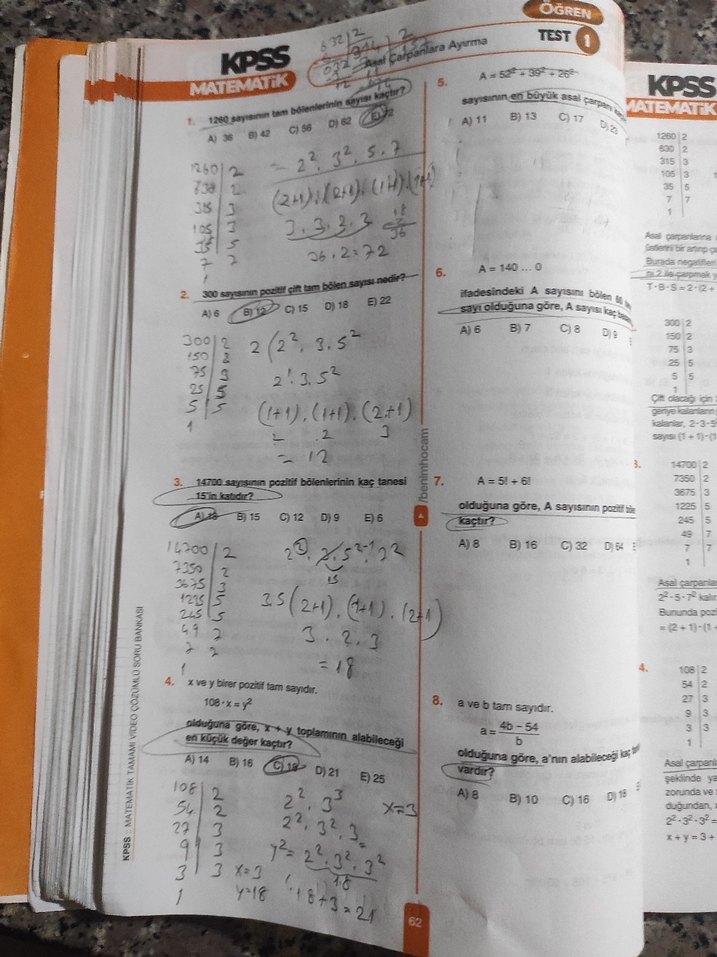 ÖĞREN
KPSS
MATEMATİK
Asal Çarpanlara Ayırma
TEST 1
632 | 2
1. 1260 sayısının tam bölenlerinin sayısı kaçtır?
A) 36 B) 42 C) 56 D) 62 E) 72
1260 | 2
315 | 3
105 | 3
35 | 5
7 | 7
1
= 2². 3². 5. 7
(2+1).(2+1).(1+1).(1+1)
3. 3. 2. 2
18
2
36
36. 2 = 72
2. 300 sayısının pozitif çift tam bölen sayısı nedir?
A) 6 B) 12 C) 15 D) 18 E) 22
300 | 2
150 | 2
75 | 3
25 | 5
5 | 5
1
2 (2². 3. 5²
2¹. 3. 5²
(1+1). (1+1). (2+1)
2 . 2 3
= 12
3. 14700 sayısının pozitif bölenlerinin kaç tanesi
15'in katıdır?
A) 18 B) 15 C) 12 D) 9 E) 6
14700 | 2
7350 | 2
3675 | 3
1225 | 5
245 | 5
49 | 7
7 | 7
1
15
3.5 (2+1). (1+1). (2+1)
3 . 2 . 3
= 18
4. x ve y birer pozitif tam sayıdır.
108·x = y²
olduğuna göre, x + y toplamının alabileceği
en küçük değer kaçtır?
A) 14 B) 16 C) 18 D) 21 E) 25
108 | 2
54 | 2
27 | 3
9 | 3
3 | 3
1
2². 3³
2². 3². 3
x=3
y² = 2². 3². 3²
18
x=3
y=18
18+3 = 21
KPSS :: MATEMATİK TAMAMI VİDEO ÇÖZÜMLÜ SORU BANKASI
/benimhocam
62
5. A = 52² + 39² + 26²
sayısının en büyük asal çarpanı
A) 11 B) 13 C) 17 D) 23
6. A = 140 ... 0
ifadesindeki A sayısını bölen 60
sayı olduğuna göre, A sayısı kaç
A) 6 B) 7 C) 8 D) 9
7. A = 5! + 6!
olduğuna göre, A sayısının pozitif
kaçtır?
A) 8 B) 16 C) 32 D) 64
8. a ve b tam sayıdır.
a = (4b – 54) / b
olduğuna göre, a'nın alabileceği kaç
vardır?
A) 8 B) 10 C) 16 D) 18
KPSS
MATEMATİK
1260 | 2
630 | 2
315 | 3
105 | 3
35 | 5
7 | 7
1
Asal çarpanlarına
üstlerini bir artırıp
Burada negatifleri
nı 2 ile çarpmak
T·B·S = 2·(2+
300 | 2
150 | 2
75 | 3
25 | 5
5 | 5
1
Çift olacağı için
geriye kalanların
kalanlar, 2·3·5
sayısı (1+1)·(1
3.
14700 | 2
7350 | 2
3675 | 3
1225 | 5
245 | 5
49 | 7
7 | 7
1
Asal çarpanlar
2²·5·7² kalır
Bununda
= (2+1)·(1+
4.
108 | 2
54 | 2
27 | 3
9 | 3
3 | 3
1
Asal
şeklinde
zorunda ve
duğundan,
2²·3²·3² =
x + y = 3 +